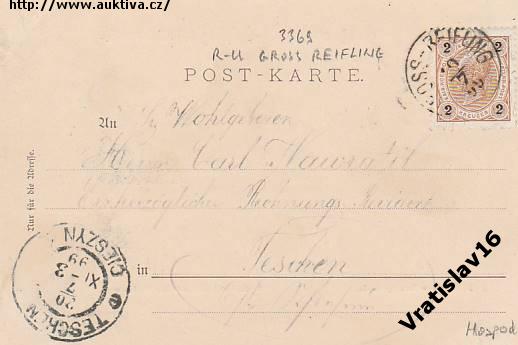 www.auktiva.cz
3369
R-U GROSS REIFLING
POST-KARTE.
GROSS-REIFLING
2 2
2 2
An
Wohlgeboren
Herrn Carl Hawratil
Erzherzoglicher Rechnungs
in Teschen
Nur für die Adresse.
TESCHEN CIESZYN
20
7-3
XI
99
Vratislav16
Hospod